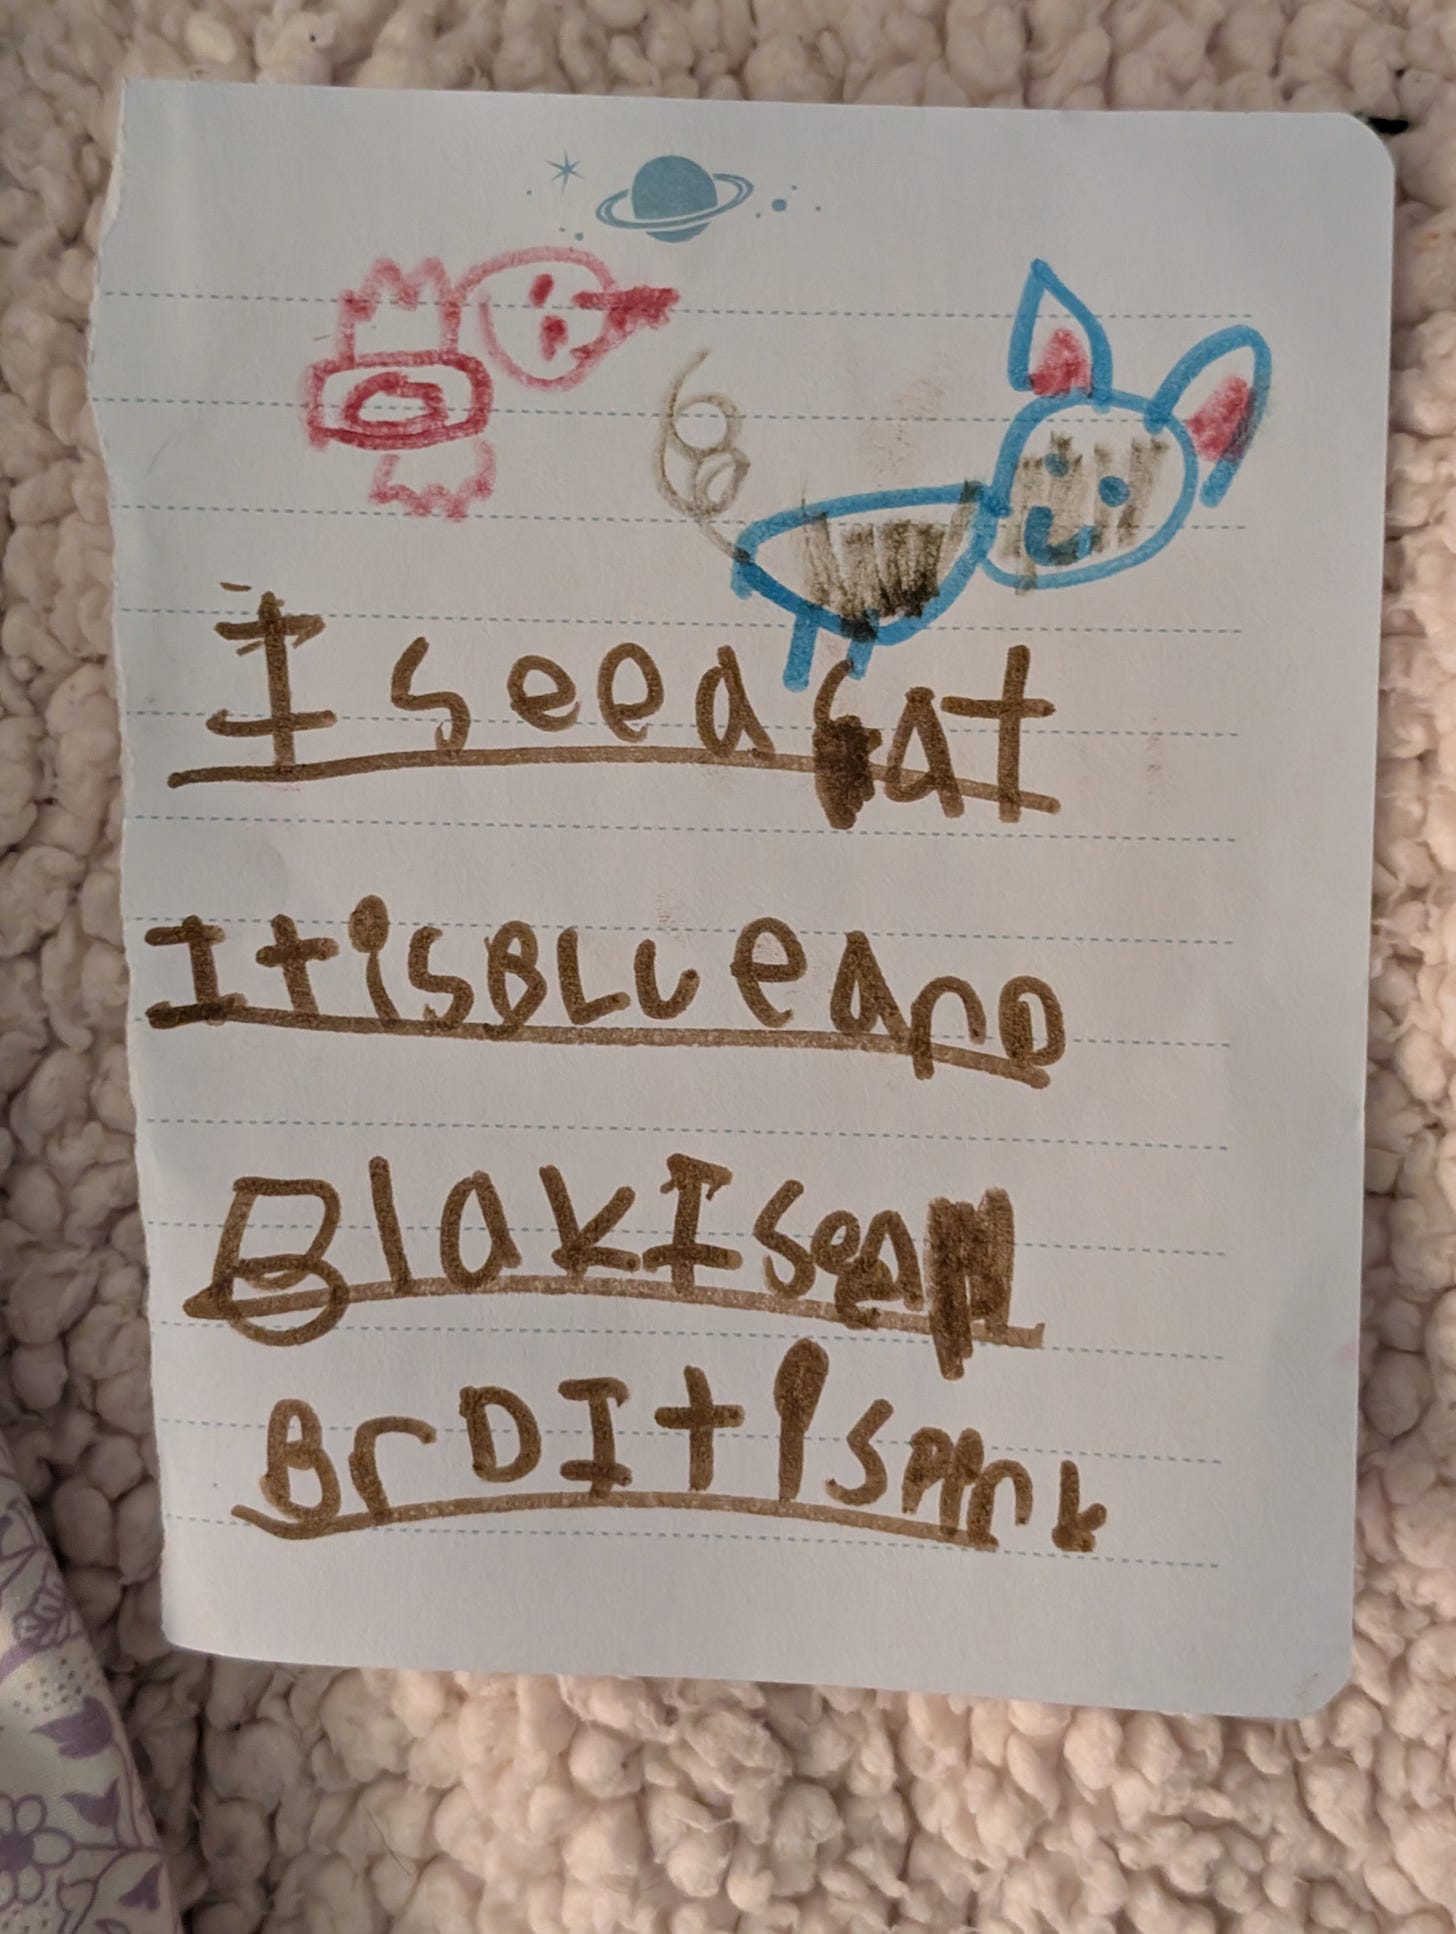 I see a cat
It is BLUe AnD
Blak I see a
BrD It is Pink